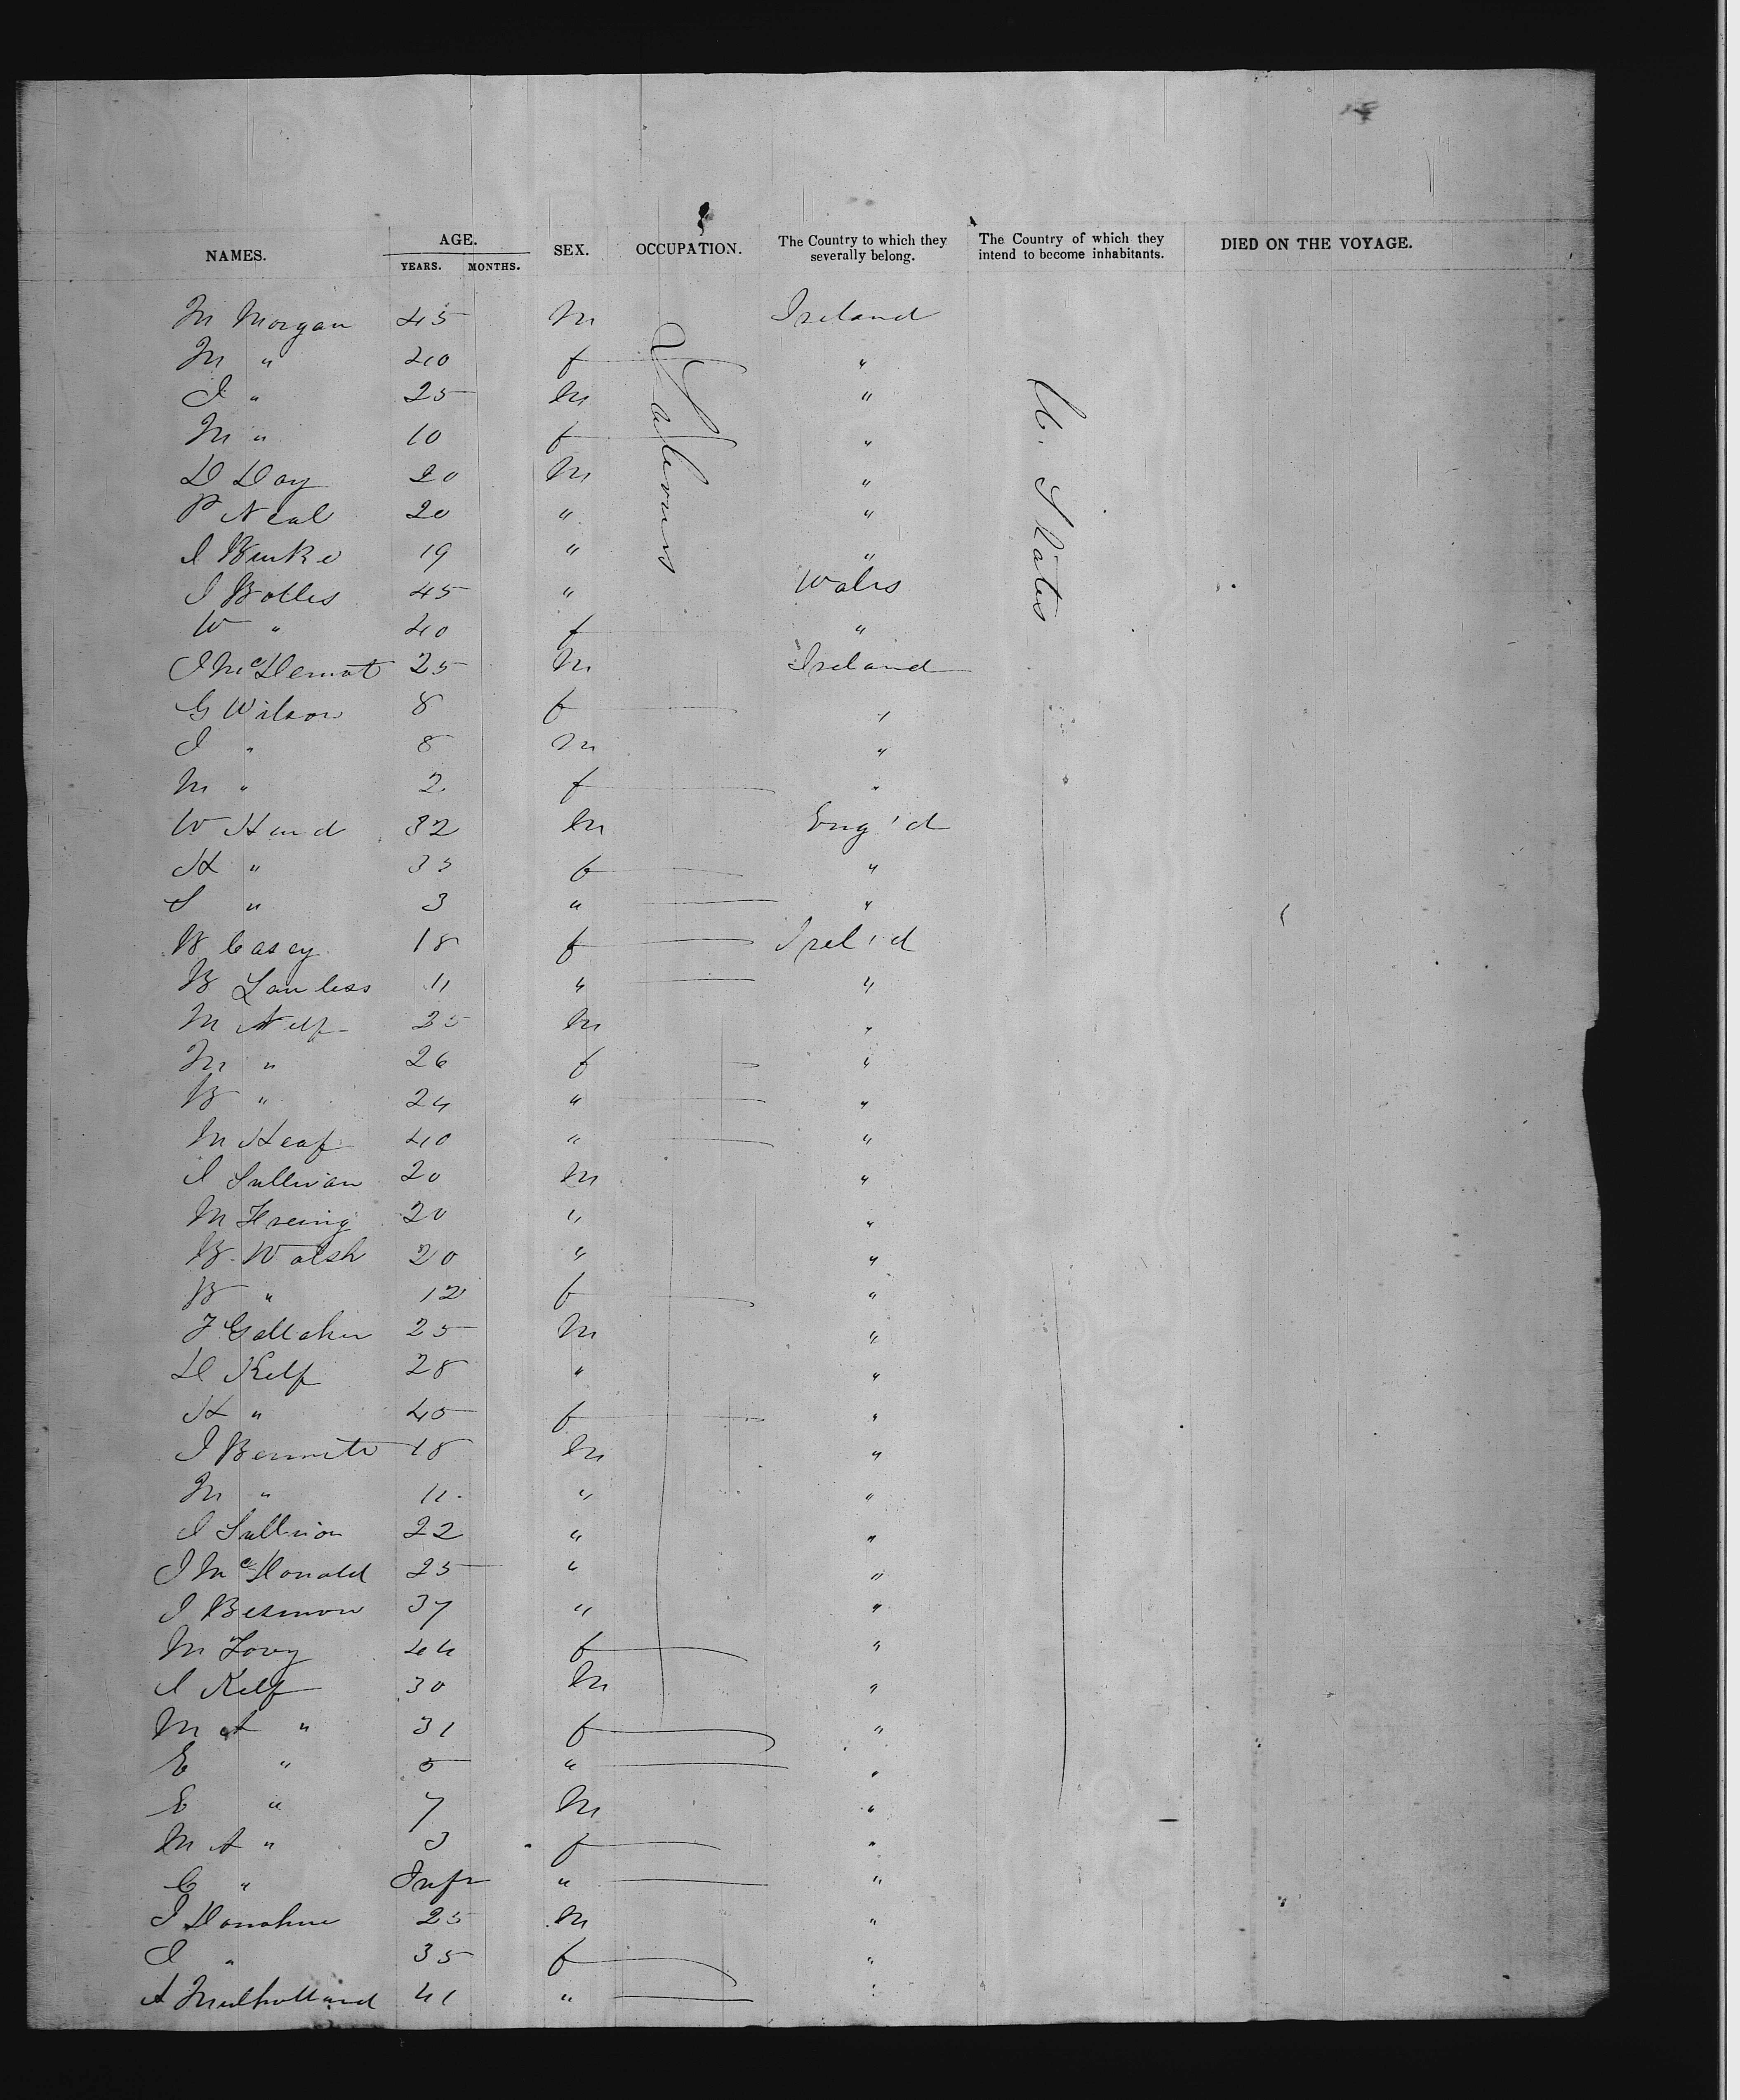 NAMES. AGE. YEARS. MONTHS. SEX. OCCUPATION. The Country to which they severally belong. The Country of which they intend to become inhabitants. DIED ON THE VOYAGE.
M Morgan 45 M Ireland
M " 40 f "
J " 25 M "
M " 10 f "
D Day 20 M "
P Neal 20 " "
J Burke 19 " "
J Bolles 45 " Wales
W " 40 f "
J McDermot 25 M Ireland
G Wilson 8 f "
J " 8 M "
M " 2 f "
W Hand 32 M Eng'd
H " 35 f "
S " 3 " "
B Casey 18 f Irel'd
B Lawless 11 " "
M 25 M "
M " 26 f "
B " 24 " "
M Heaf 40 " "
J Sullivan 20 M "
M 20 " "
B Walsh 20 " "
B " 12 f "
F Gallaher 25 M "
D Kelf 28 " "
H " 45 f "
J Bennett 18 M "
M " 11 " "
J Sullivan 22 " "
J McDonald 25 " "
J 37 " "
M 44 f "
J Kelf 30 M "
M A " 31 f "
E " 5 " "
E " 7 M "
M A " 3 f "
C " Inft " "
J Donohue 25 M "
J " 35 f "
A Mulholland 41 " "
Labourers
U. States